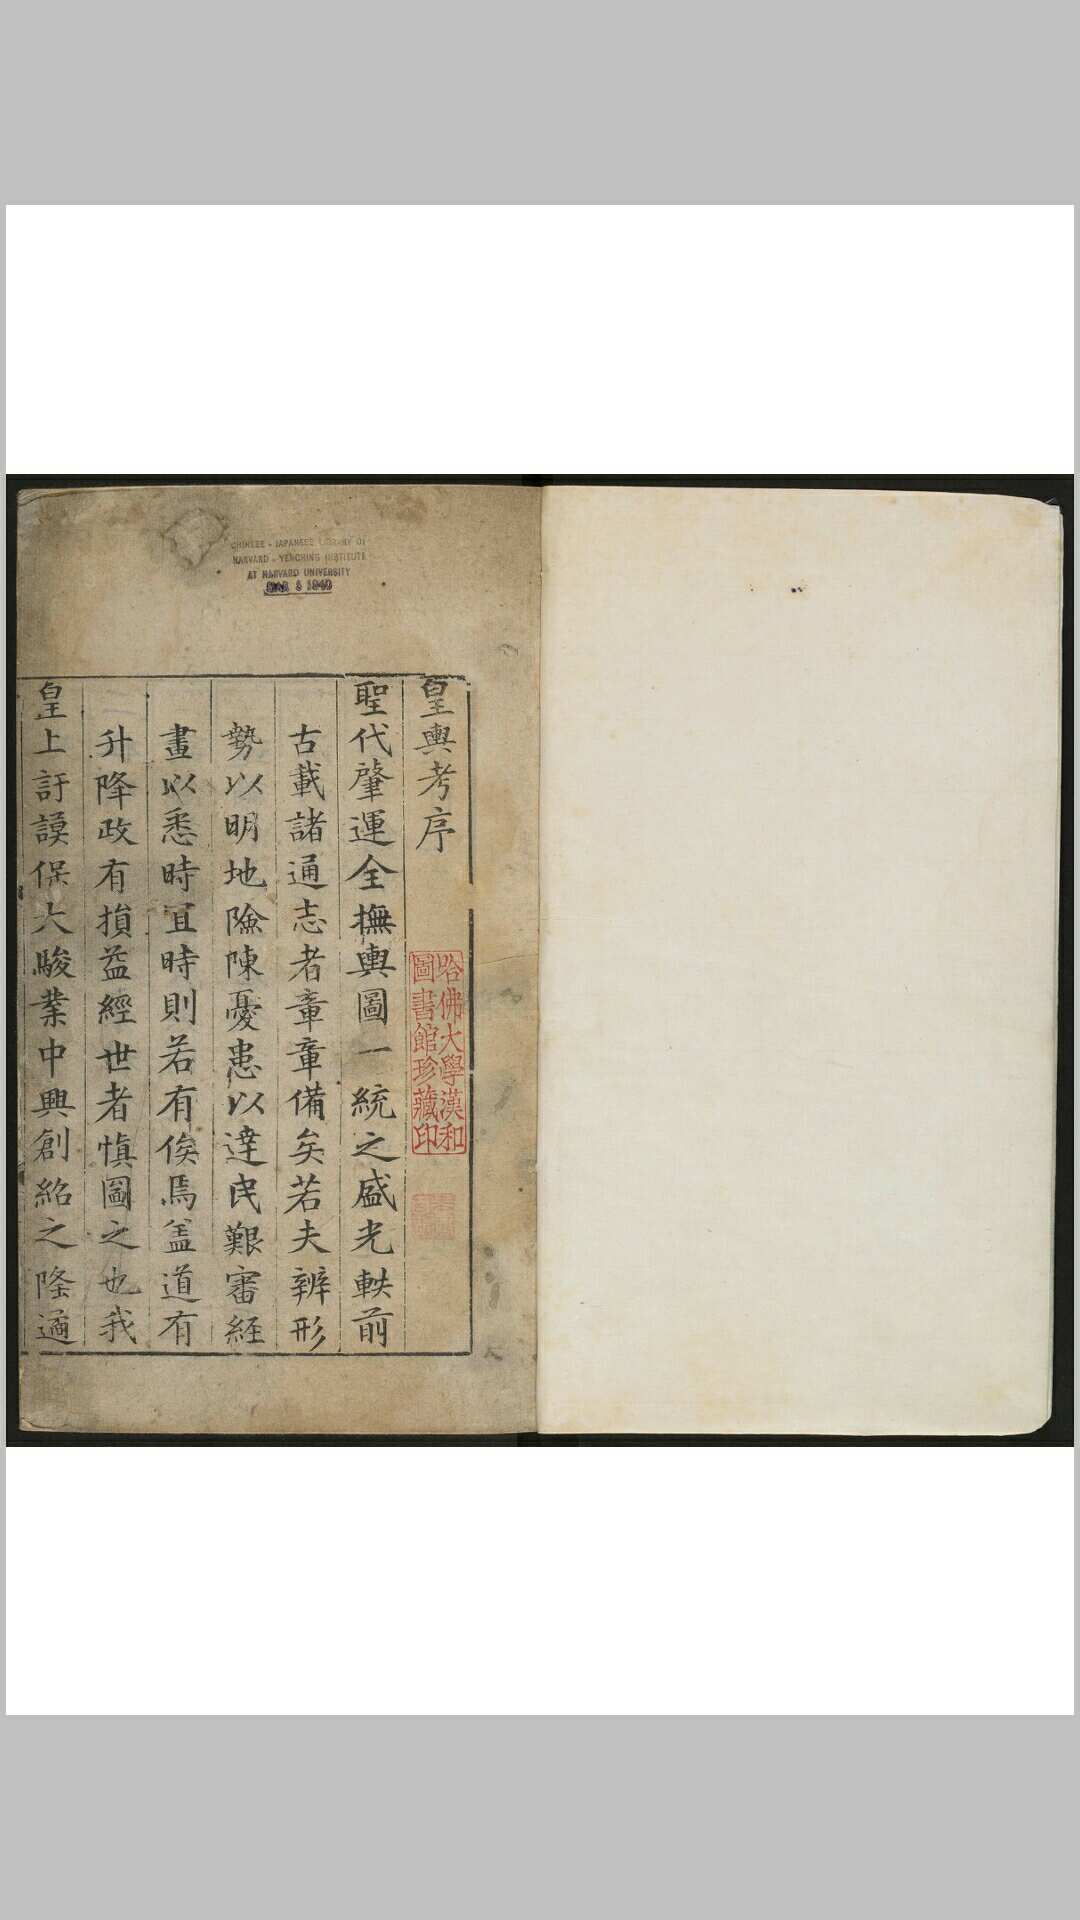 CHINESE - JAPANESE LIBRARY OF
HARVARD - YENCHING INSTITUTE
AT HARVARD UNIVERSITY
MAR 8 1940
皇輿考序
聖代肇運全撫輿圖一統之盛光軼前
古載諸通志者章章備矣若夫辨形
勢以明地險陳憂患以達民艱審經
畫以悉時宜時則若有俟焉盖道有
升降政有損益經世者慎圖之也我
皇上訏謨保大駿業中興創紹之隆適
哈佛大學漢和
圖書館珍藏印